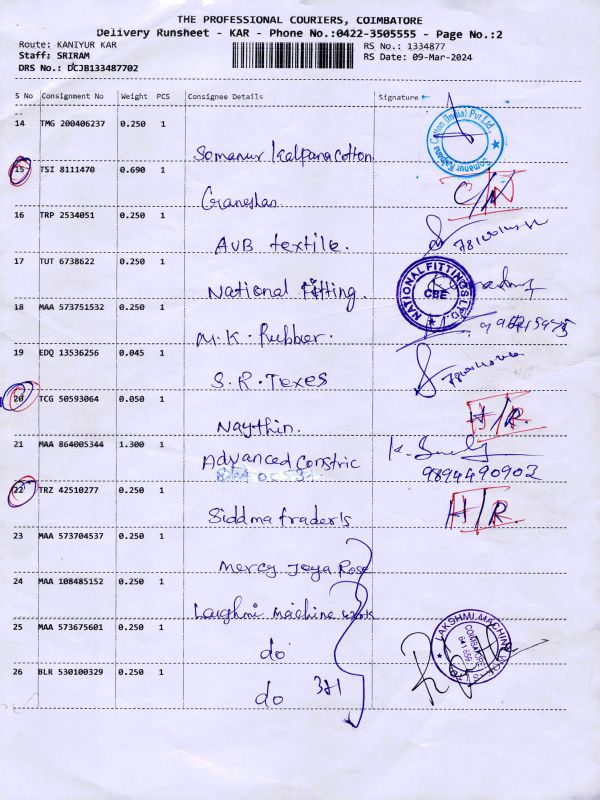 THE PROFESSIONAL COURIERS, COIMBATORE
Delivery Runsheet - KAR - Phone No.:0422-3505555 - Page No.:2
Route: KANIYUR KAR
RS No.: 1334877
Staff: SRIRAM
RS Date: 09-Mar-2024
DRS No.: DCJB133487702
S No Consignment No Weight PCS Consignee Details Signature
14 TMG 200406237 0.250 1
Somanur Kalpana Cotton
Somanur Kalpana Cotton (India) Pvt Ltd.
15 TSI 8111470 0.690 1
Ganeshan.
16 TRP 2534051 0.250 1
AVB textile.
17 TUT 6738622 0.250 1
National Fitting.
NATIONAL FITTINGS LTD
CBE
18 MAA 573751532 0.250 1
M.K. Rubber.
19 EDQ 13536256 0.045 1
S.R. Texes
20 TCG 50593064 0.050 1
Naythin.
H/R.
21 MAA 864005344 1.300 1
Advanced Constric
9894490902
22 TRZ 42510277 0.250 1
Siddma trader's
H/R.
23 MAA 573704537 0.250 1
Mercy Jeya Rose
24 MAA 108485152 0.250 1
Laighmi machine work
25 MAA 573675601 0.250 1
do
LAKSHMI MACHINE
COIMBATORE
641 659
26 BLR 530100329 0.250 1
do 381